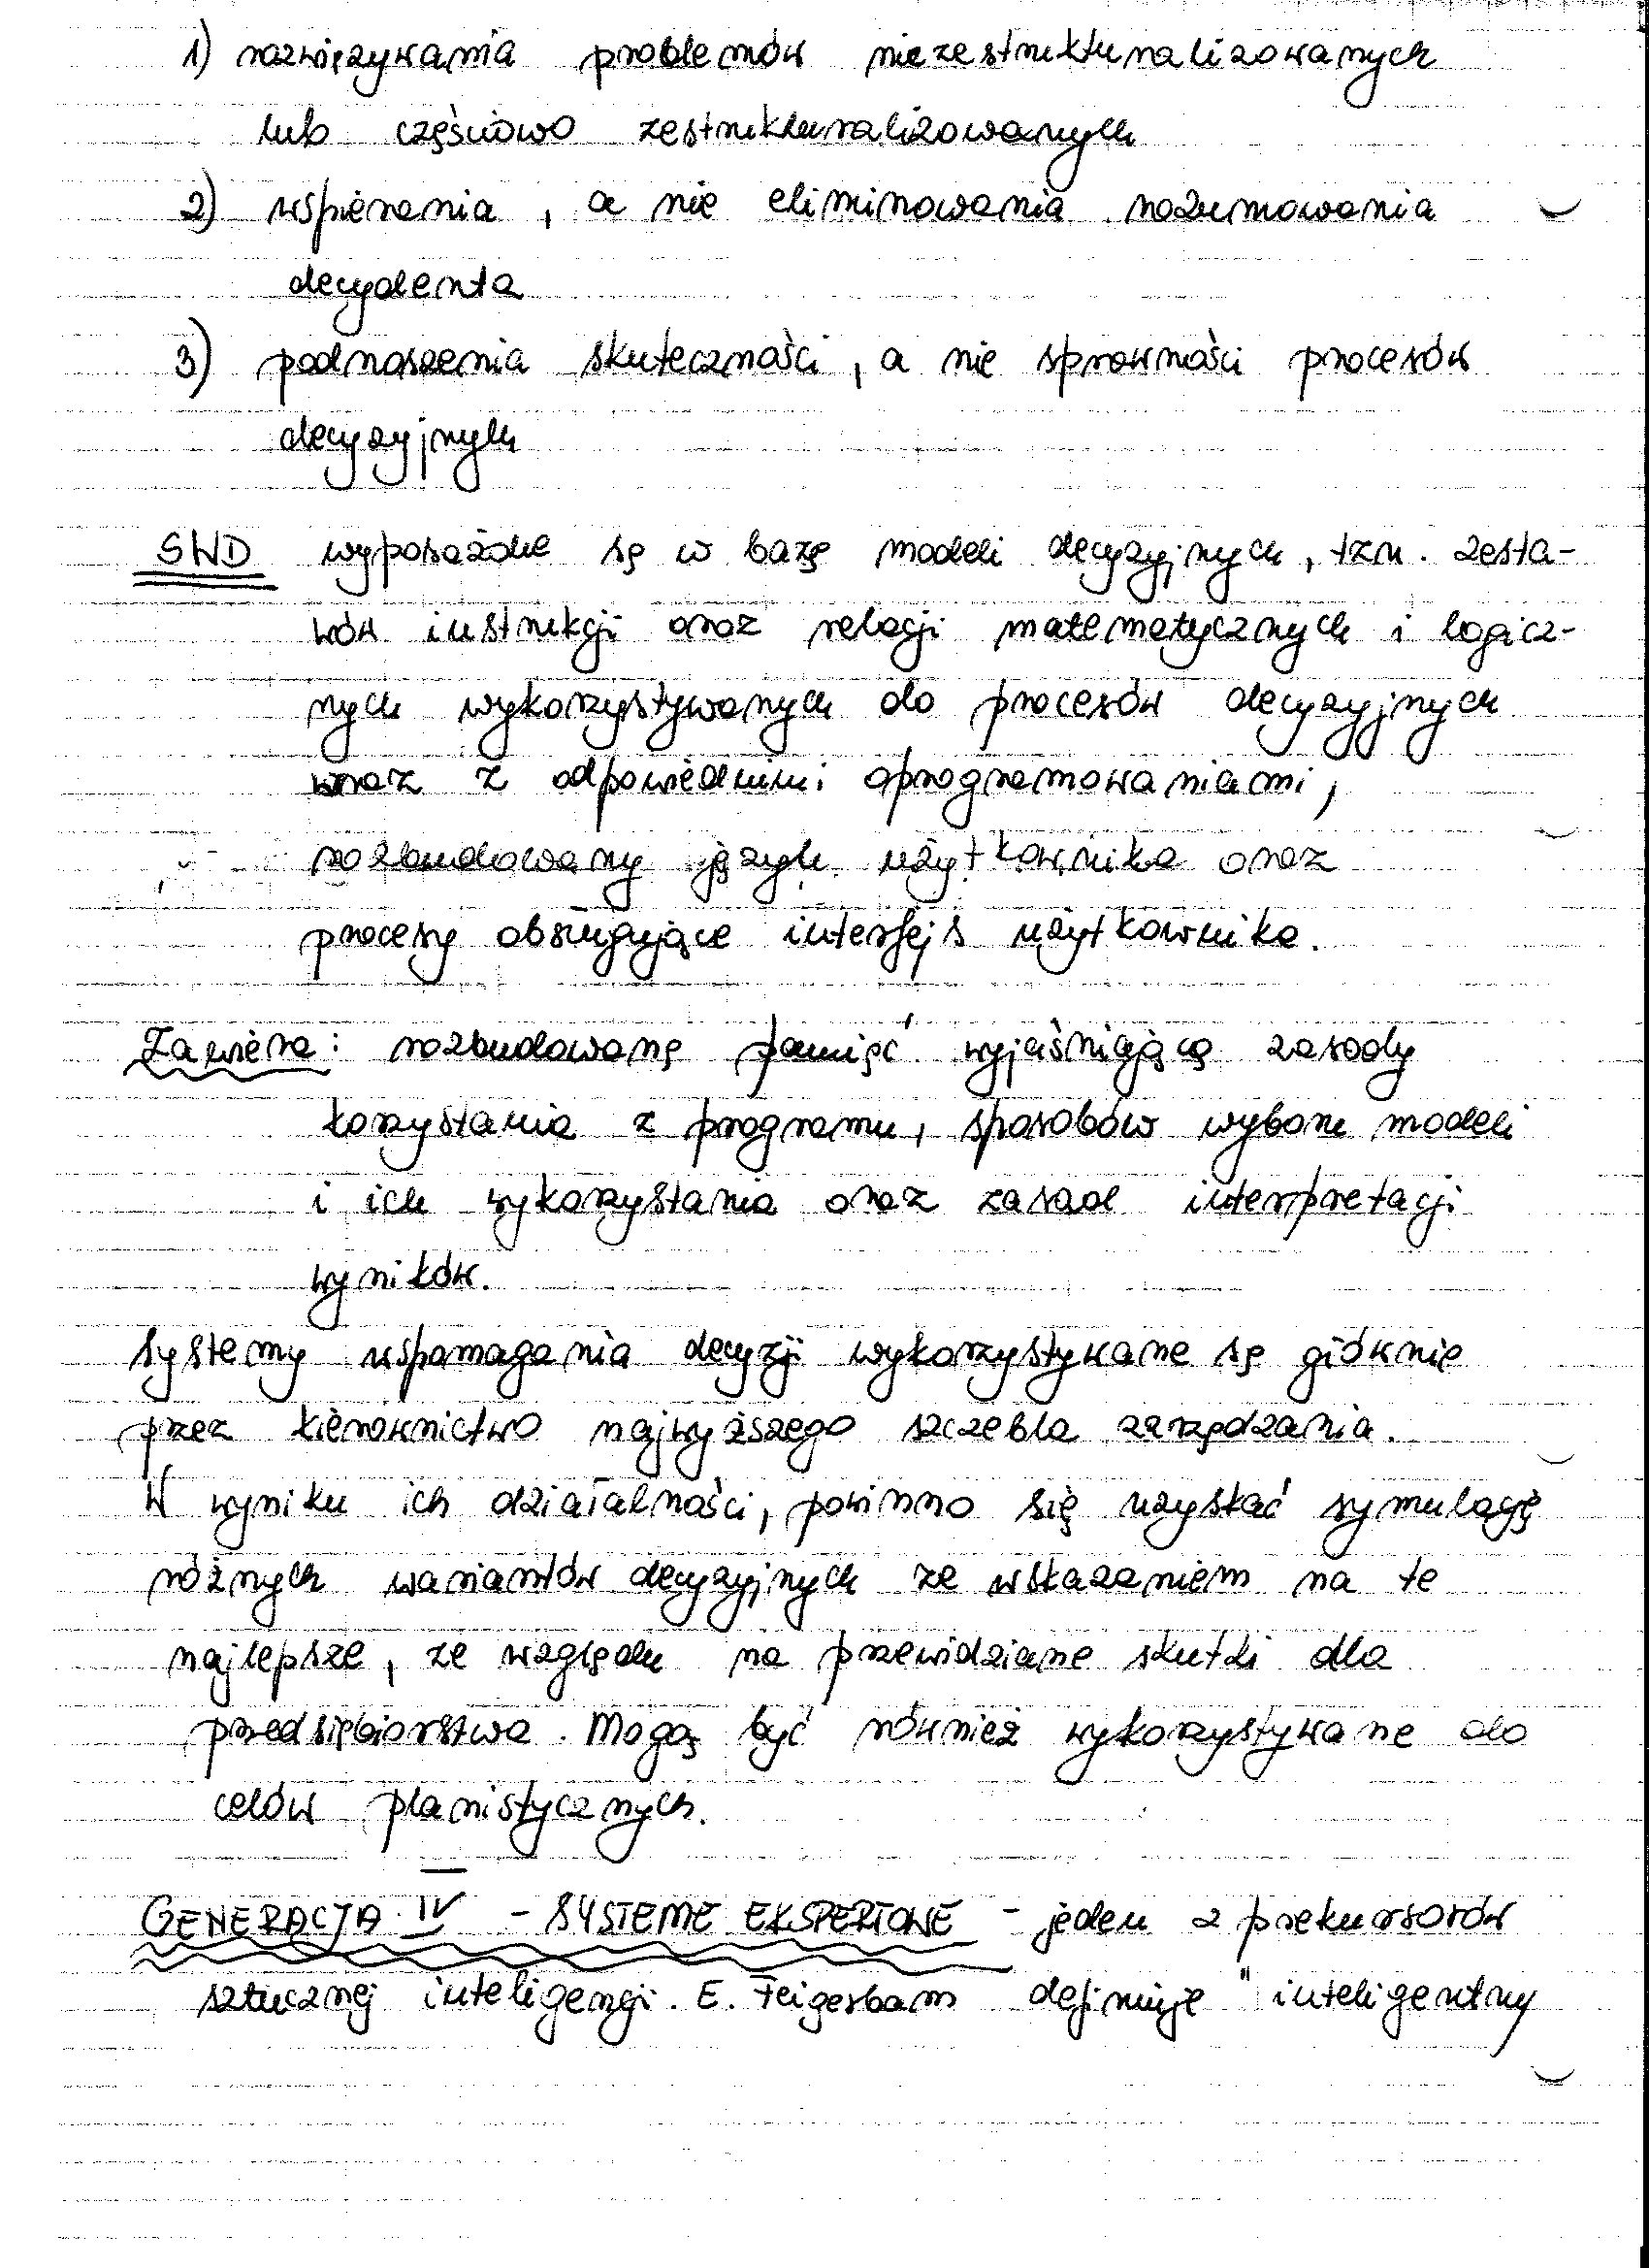 1) rozwiązywania problemów niezestrukturalizowanych
lub częściowo zestrukturalizowanych
2) wspierania, a nie eliminowania rozumowania
decydenta
3) podnoszenia skuteczności, a nie sprawności procesów
decyzyjnych
SWD wyposażone są w bazę modeli decyzyjnych, tzn. zesta-
wów instrukcji oraz relacji matematycznych i logicz-
nych wykorzystywanych do procesów decyzyjnych
wraz z odpowiednimi oprogramowaniami,
rozbudowany język użytkownika oraz
procesy obsługujące interfejs użytkownika.
Zawiera: rozbudowaną pamięć wyjaśniającą zasady
korzystania z programu, sposobów wyboru modeli
i ich wykorzystania oraz zasad interpretacji
wyników.
Systemy wspomagania decyzji wykorzystywane są głównie
przez kierownictwo najwyższego szczebla zarządzania.
W wyniku ich działalności, powinno się uzyskać symulację
różnych wariantów decyzyjnych ze wskazaniem na te
najlepsze, ze względu na przewidziane skutki dla
przedsiębiorstwa. Mogą być również wykorzystywane do
celów planistycznych.
GENERACJA IV - SYSTEME EKSPERTOWE - jeden z prekursorów
sztucznej inteligencji. E. Feigerbam definiuje "inteligentny